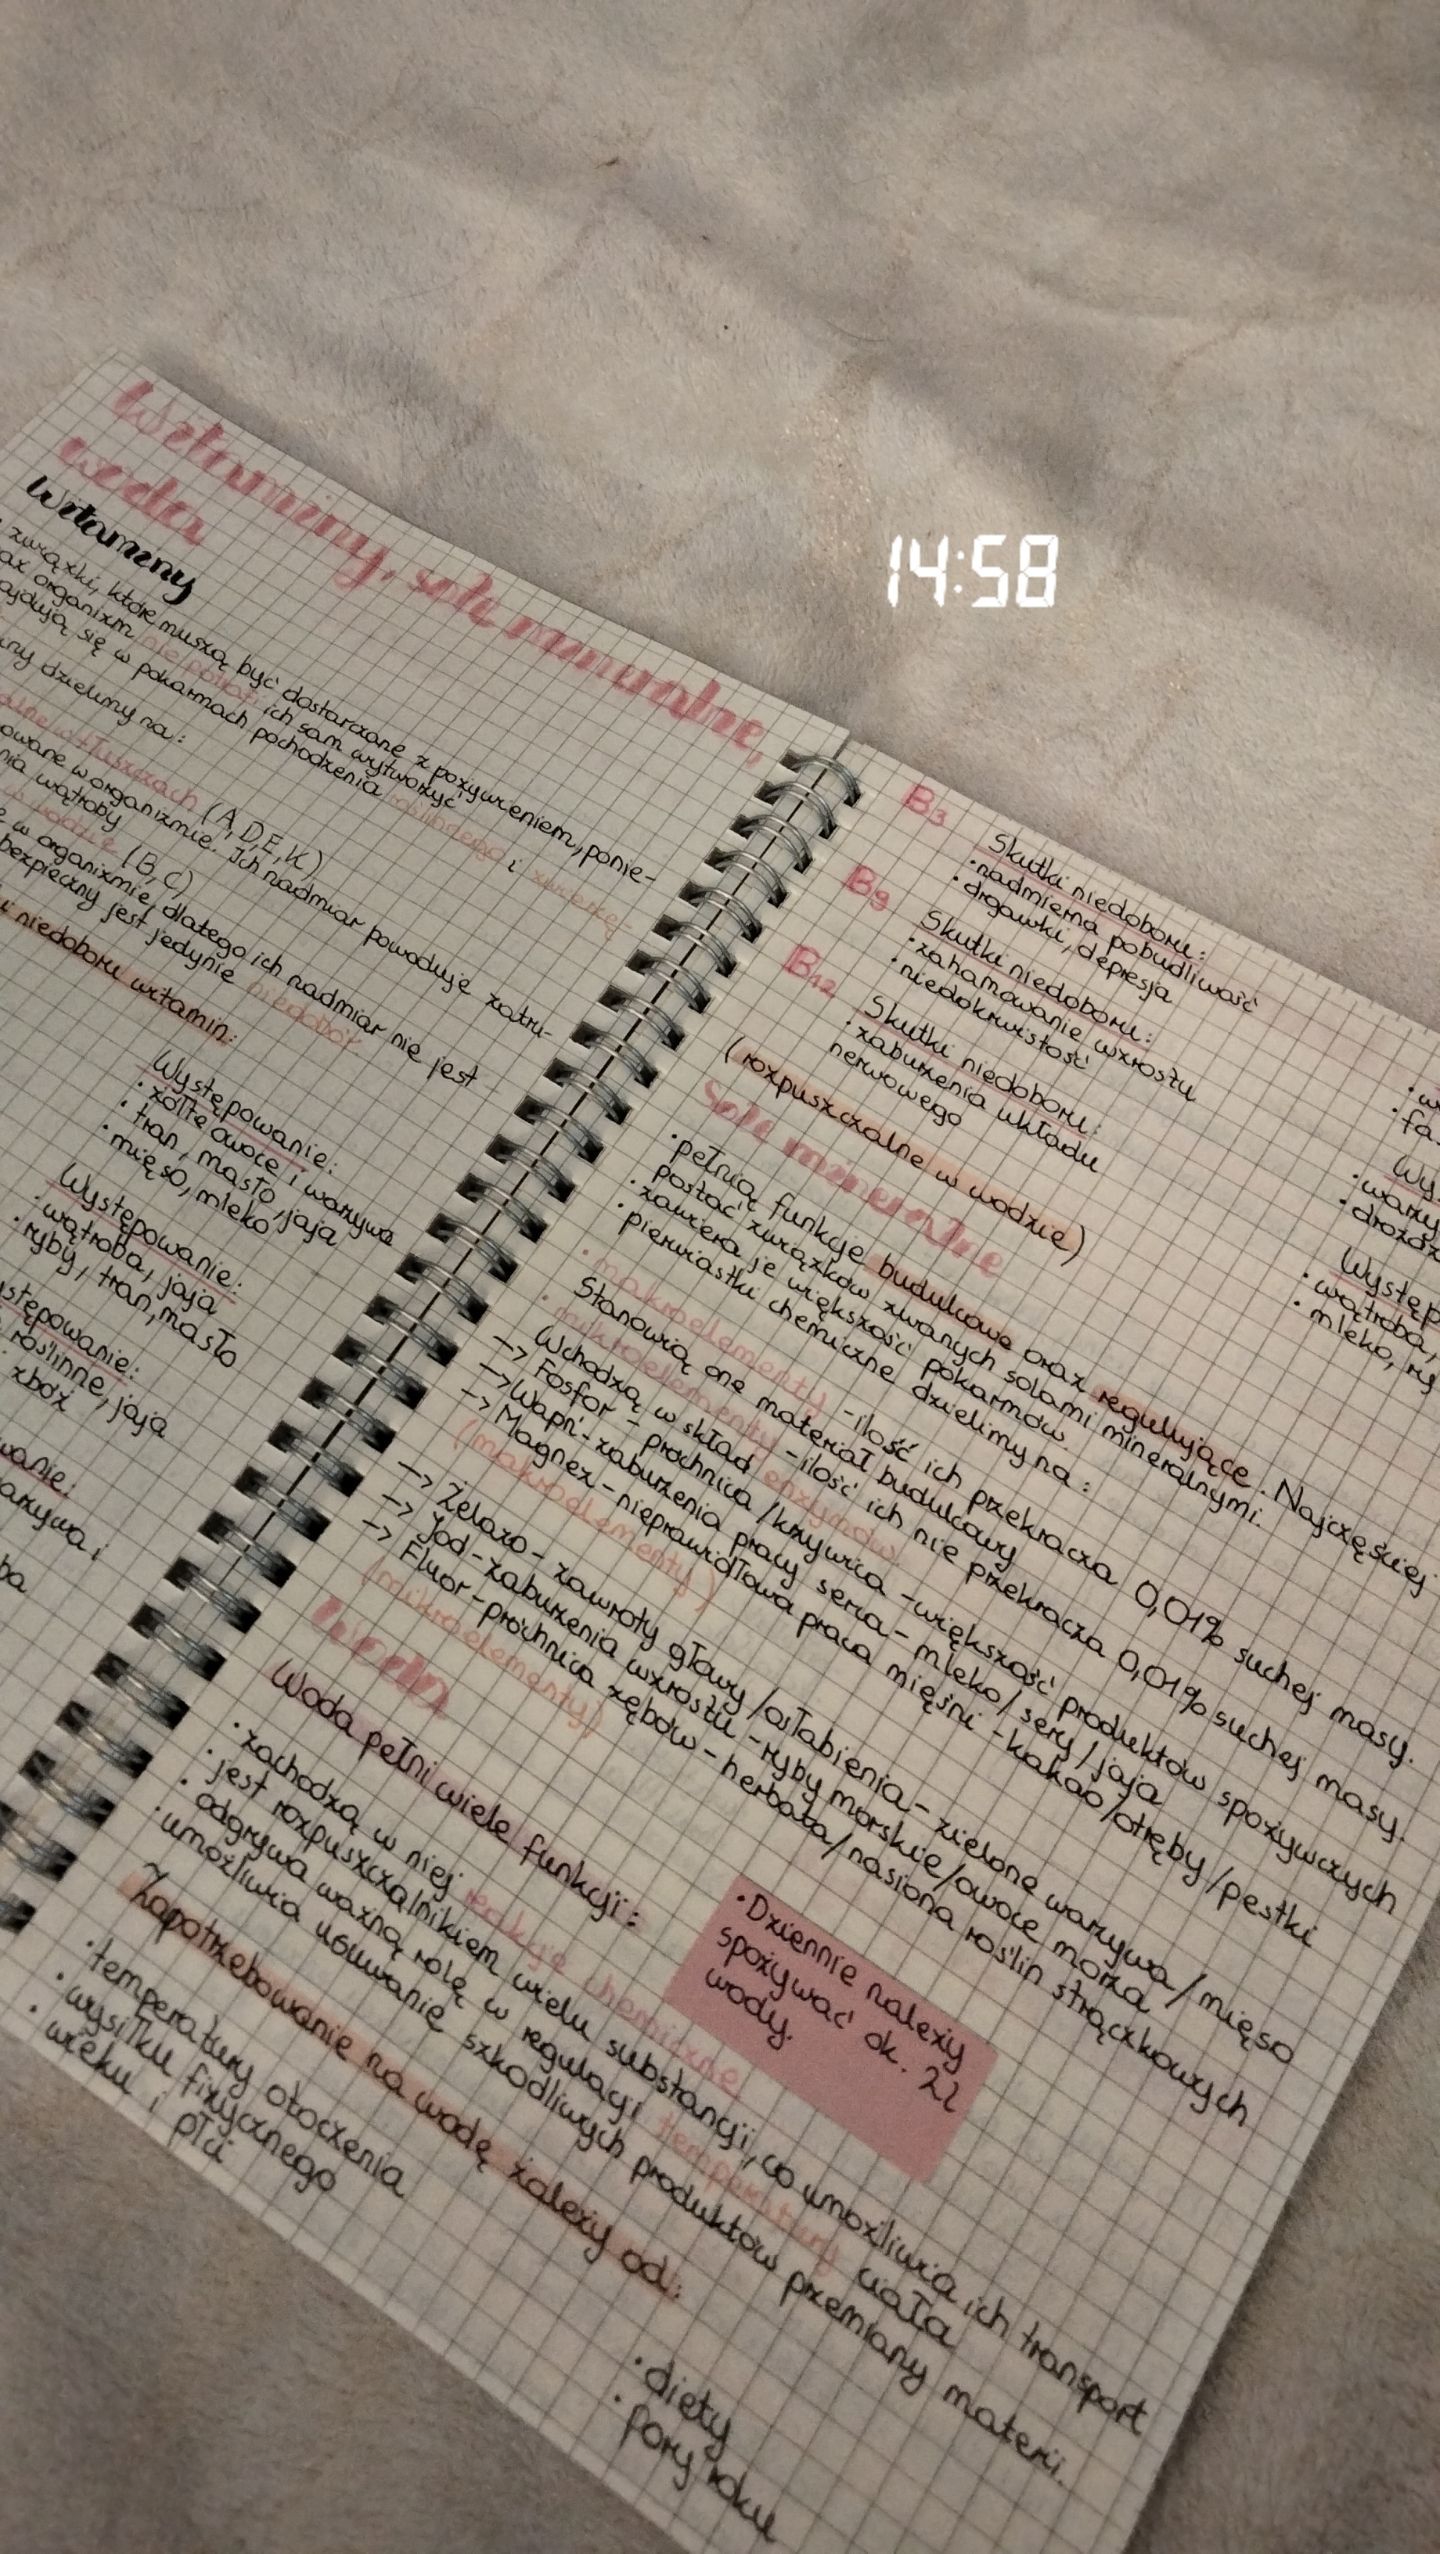 14:58
Witaminy, sole mineralne,
woda
Witaminy
związki, które muszą być dostarczone z pożywieniem, ponie-
organizm nie potrafi ich sam wytworzyć
się w pokarmach pochodzenia roślinnego i
dzielimy na:
w tłuszczach (A, D, E, K)
w organizmie. Ich nadmiar powoduje zatru-
wątroby
w wodzie (B, C)
w organizmie, dlatego ich nadmiar nie jest
bezpieczny jest jedynie niedobór.
i niedoboru witamin:
Występowanie:
• żółte owoce i warzywa
• tran, masło, jaja
• mięso, mleko
Występowanie:
• wątroba, jaja
• ryby, tran, masło
roślinne, jaja
zbóż
B3
Skutki niedoboru:
• nadmierna pobudliwość
• drgawki, depresja
B9
Skutki niedoboru:
• zahamowanie wzrostu
• niedokrwistość
B12
Skutki niedoboru:
• zaburzenia układu
nerwowego
(rozpuszczalne w wodzie)
• drożdż
Występ
• wątroba,
• mleko, ry
Sole mineralne
• pełnią funkcje budulcowe oraz regulujące. Najczęściej
postać związków zwanych solami mineralnymi.
• zawiera je większość pokarmów.
• pierwiastki chemiczne dzielimy na:
• makroelementy - ilość ich przekracza 0,01% suchej masy.
Stanowią one materiał budulcowy
• mikroelementy - ilość ich nie przekracza 0,01% suchej masy.
Wchodzą w skład enzymów.
→ Fosfor - próchnica / krzywica - większość produktów spożywczych
→ Wapń - zaburzenia pracy serca - mleko / sery / jaja
→ Magnez - nieprawidłowa praca mięśni - kakao / otręby / pestki
(makroelementy)
→ Żelazo - zawroty głowy / osłabienia - zielone warzywa / mięso
→ Jod - zaburzenia wzrostu - ryby morskie / owoce morza
→ Fluor - próchnica zębów - herbata / nasiona roślin strączkowych
(mikroelementy)
Woda
Woda pełni wiele funkcji:
• zachodzą w niej reakcje chemiczne
• jest rozpuszczalnikiem wielu substancji, co umożliwia ich transport
• odgrywa ważną rolę w regulacji temperatury ciała
• umożliwia usuwanie szkodliwych produktów przemiany materii.
• Dziennie należy
spożywać ok. 2l
wody.
Zapotrzebowanie na wodę zależy od:
• temperatury otoczenia
• wysiłku fizycznego
• wieku i płci
• diety
• pory roku